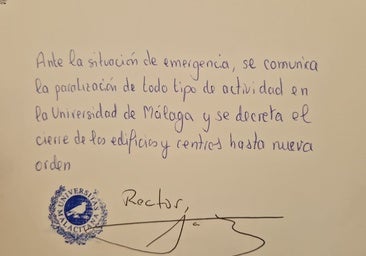 Ante la situación de emergencia, se comunica
la paralización de todo tipo de actividad en
la Universidad de Málaga y se decreta el
cierre de los edificios y centros hasta nueva
orden
Rector,
UNIVERSITAS
MALACITANA